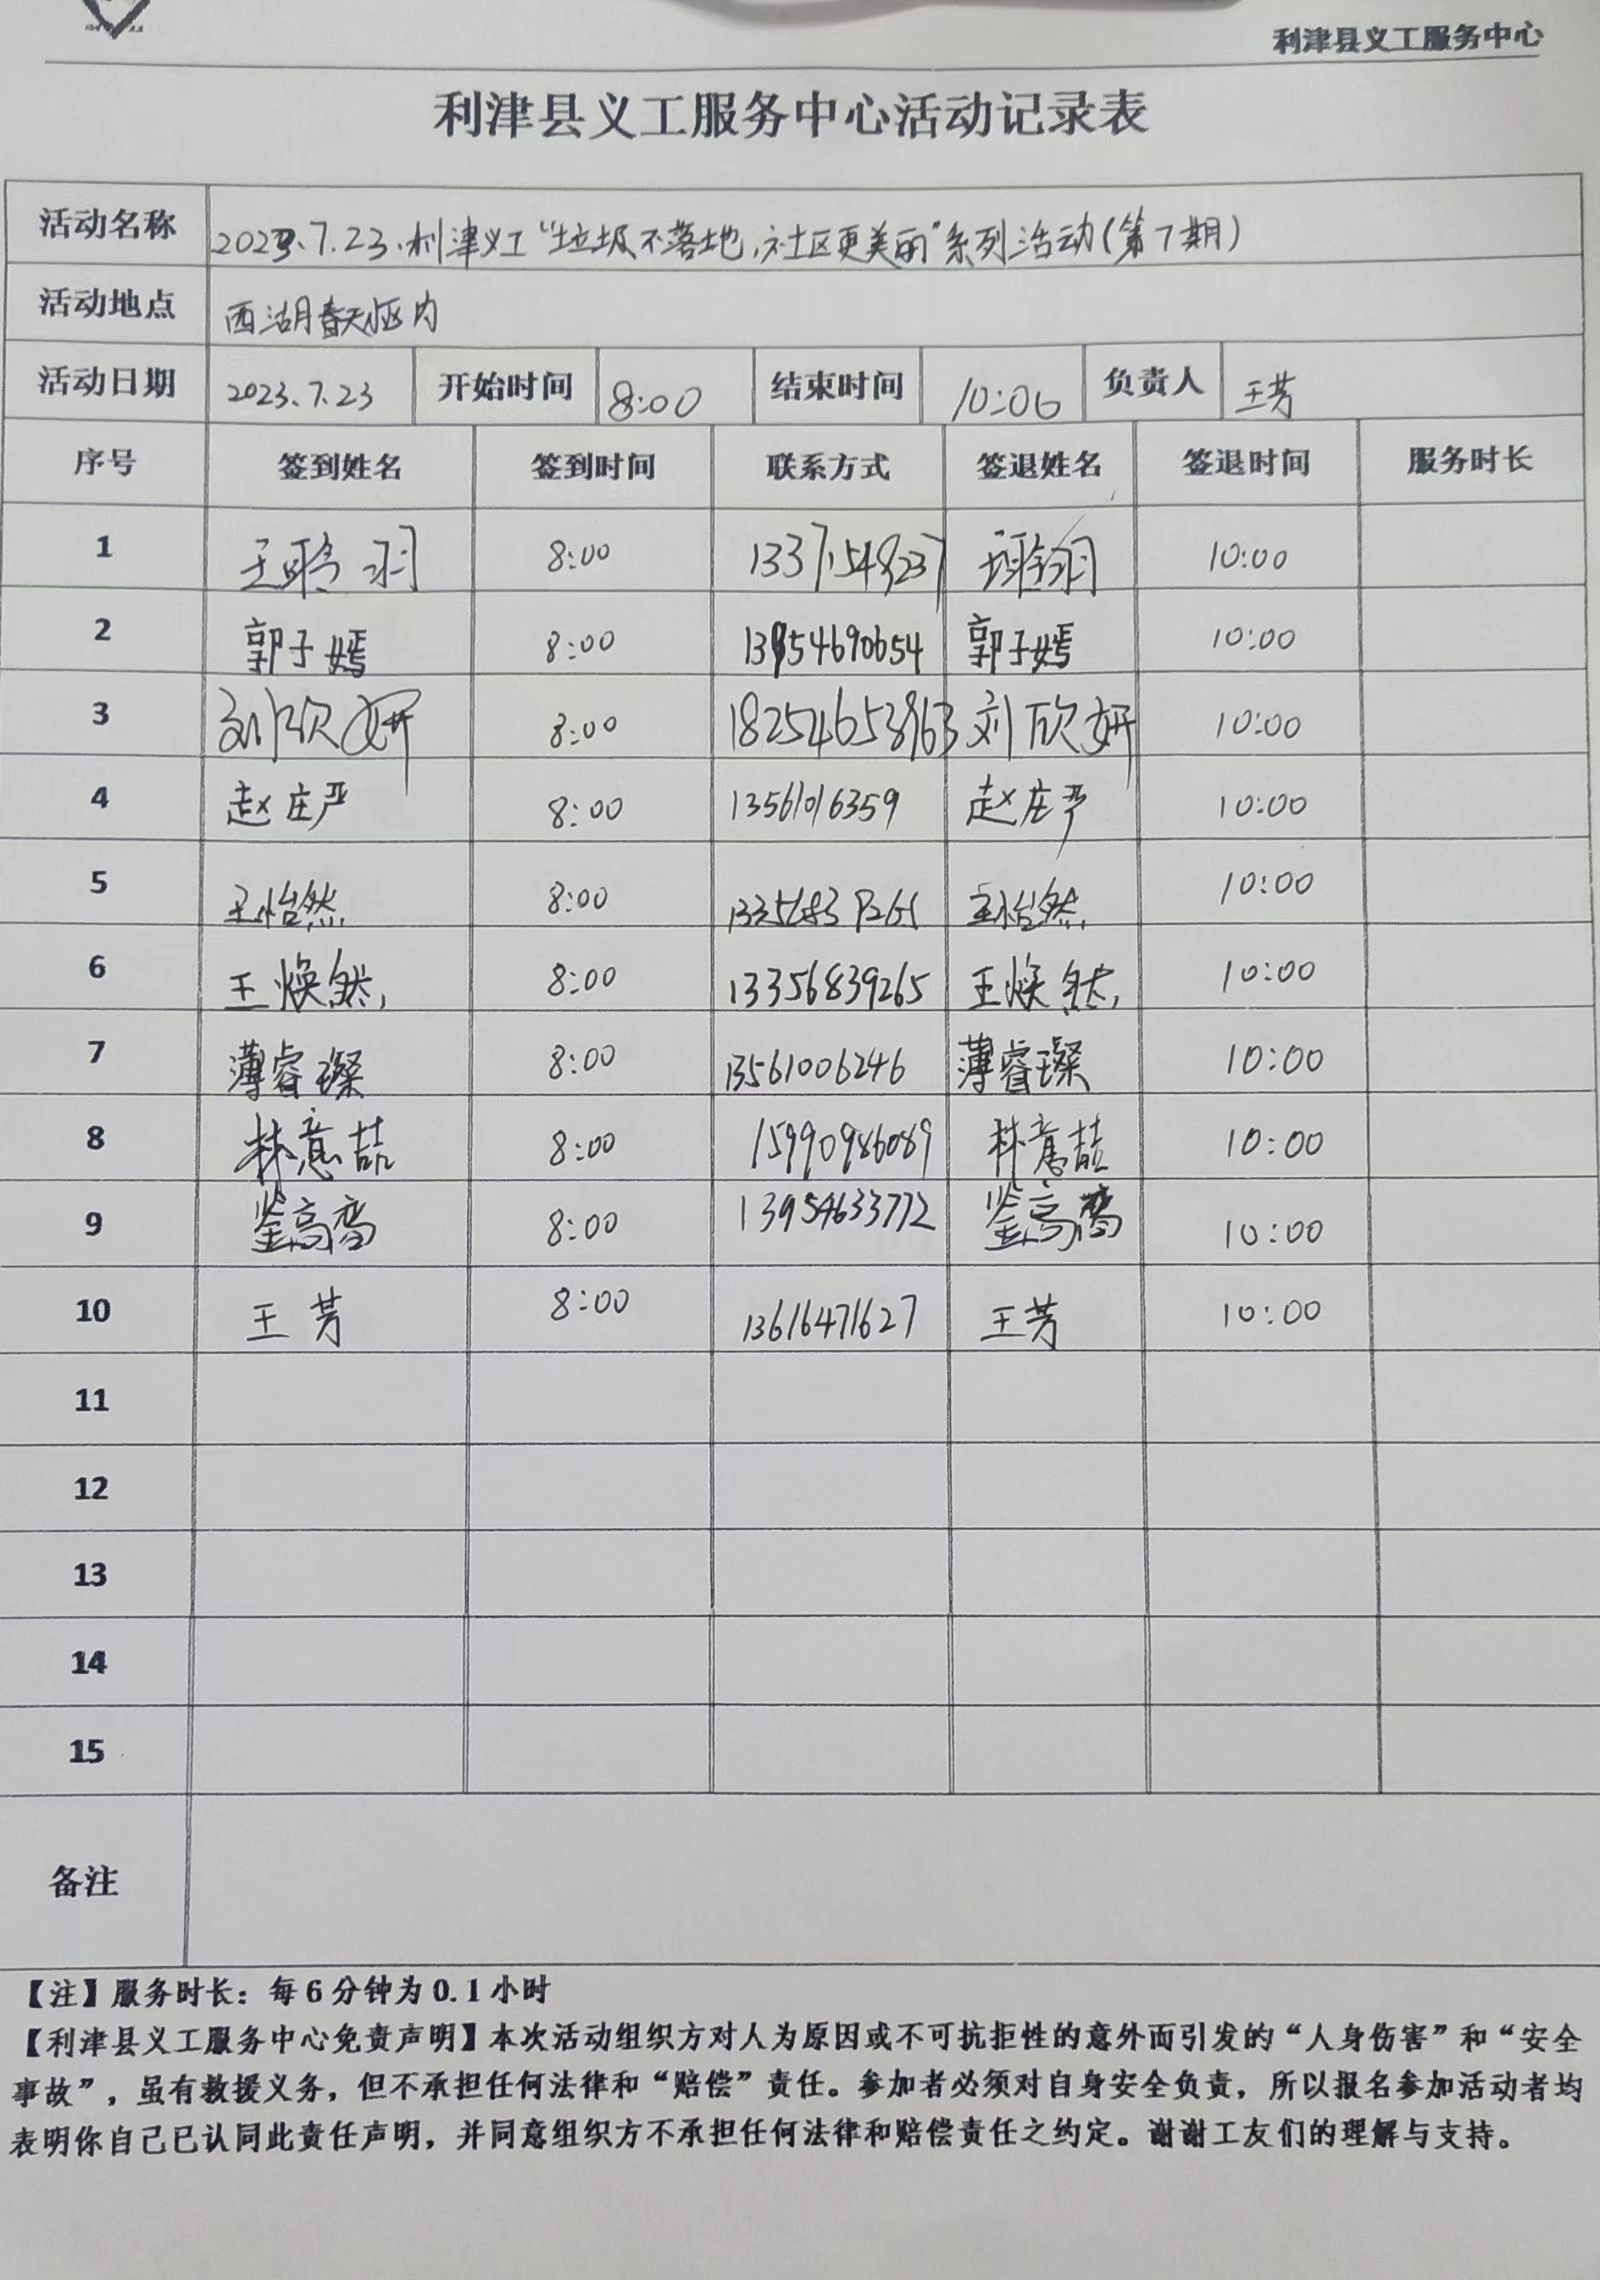 利津县义工服务中心
利津县义工服务中心活动记录表
活动名称 2023.7.23.利津义工“垃圾不落地,社区更美丽”系列活动(第7期)
活动地点 西湖春天小区内
活动日期 2023.7.23 开始时间 8:00 结束时间 10:00 负责人 王芳
序号 签到姓名 签到时间 联系方式 签退姓名 签退时间 服务时长
1 8:00 13371548237 10:00
2 郭子嫣 8:00 13954690654 郭子嫣 10:00
3 刘欣妍 8:00 18254653863 刘欣妍 10:00
4 赵庄严 8:00 13561016359 赵庄严 10:00
5 王怡然 8:00 13356839265 王怡然 10:00
6 王焕然, 8:00 13356839265 王焕然, 10:00
7 薄睿璨 8:00 13561006246 薄睿璨 10:00
8 林意喆 8:00 15990986089 林意喆 10:00
9 8:00 13954633772 10:00
10 王芳 8:00 13616471627 王芳 10:00
11
12
13
14
15
备注
【注】服务时长：每6分钟为0.1小时
【利津县义工服务中心免责声明】本次活动组织方对人为原因或不可抗拒性的意外而引发的“人身伤害”和“安全
事故”，虽有救援义务，但不承担任何法律和“赔偿”责任。参加者必须对自身安全负责，所以报名参加活动者均
表明你自己已认同此责任声明，并同意组织方不承担任何法律和赔偿责任之约定。谢谢工友们的理解与支持。